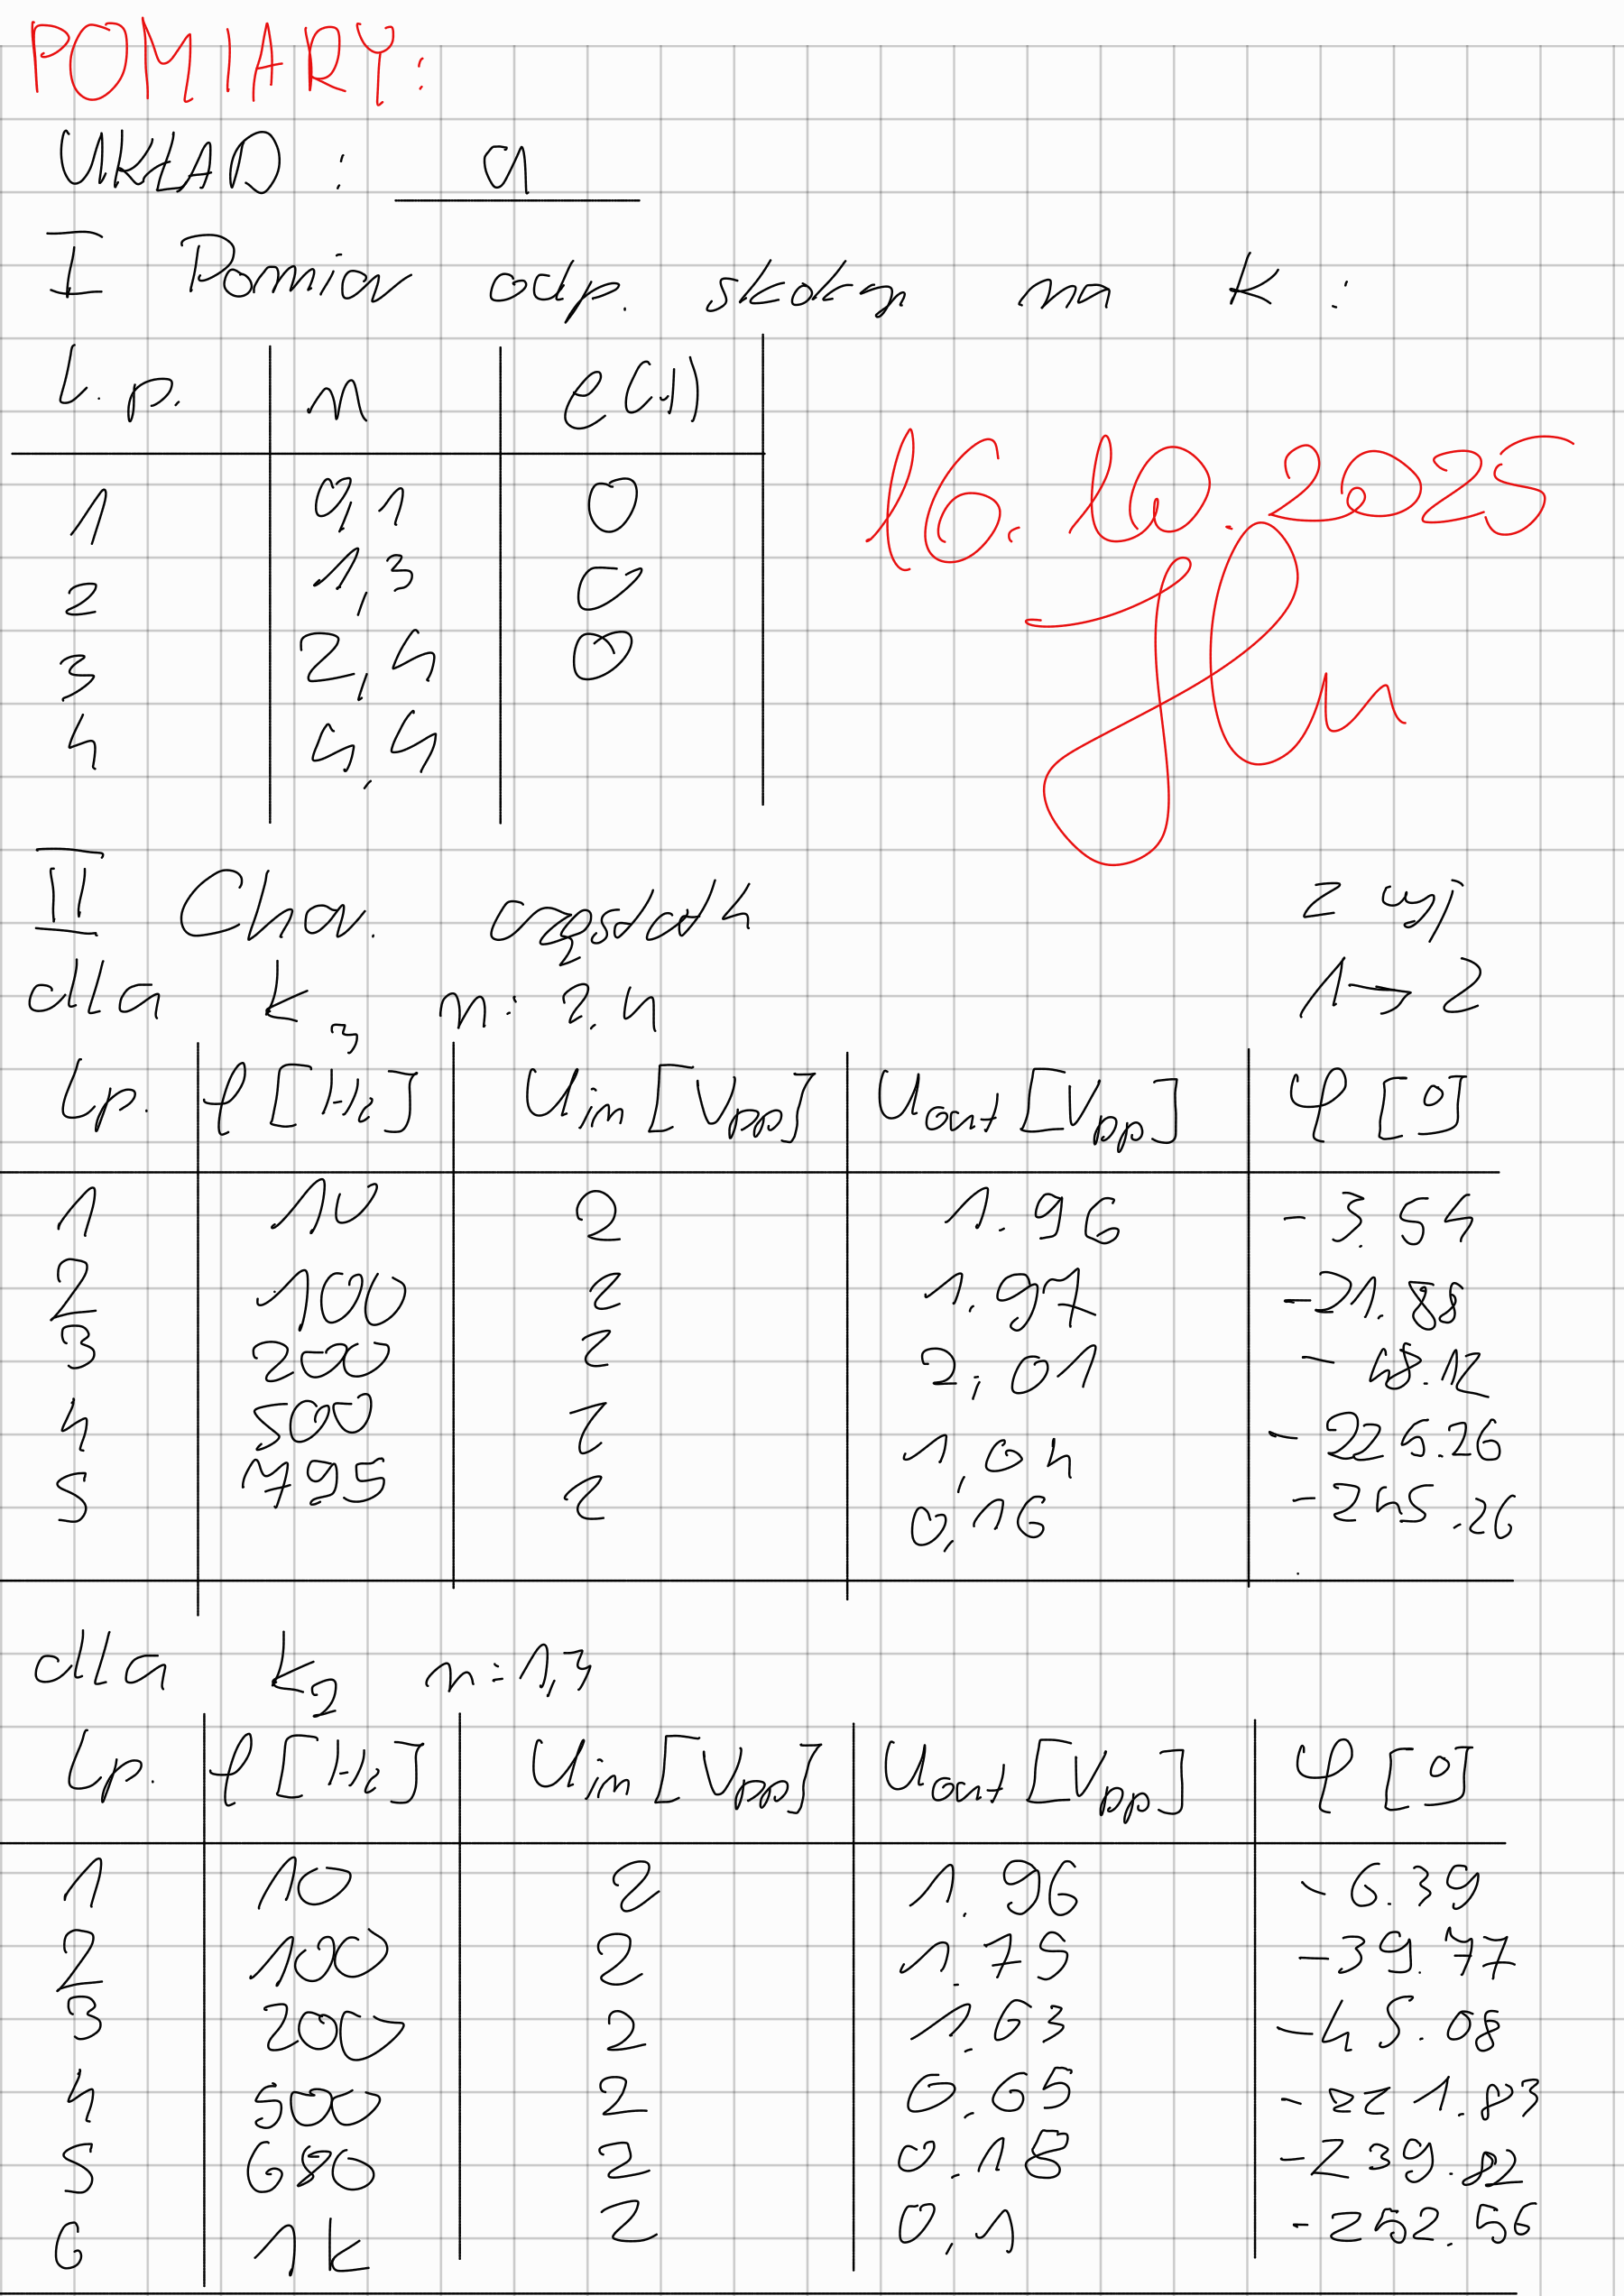 POMIARY:
UKŁAD: a
I Pomiar odp. skokey na k:
l.p. n e(+)
1 0,1 0
2 1,3 0
3 2,4 0
4 4,4
16.10.2025
II Char. częstotl z wyj
dla k3 n: 2.4 1→2
Lp. f[Hz] Uin [Vpp] Uout [Vpp] φ[°]
1 10 2 1.96 -3.54
2 100 2 1.97 -21.88
3 200 2 2,01 -48.12
4 500 2 1,04 -225.26
5 795 2 0,16 -245.26
dla k2 n=1,3
Lp. f[Hz] Uin [Vpp] Uout [Vpp] φ[°]
1 10 2 1.96 -6.39
2 100 2 1.79 -39.77
3 200 2 1.63 -45.08
4 500 2 0.65 -221.83
5 680 2 0.18 -239.82
6 1k 2 0,1 -252.56